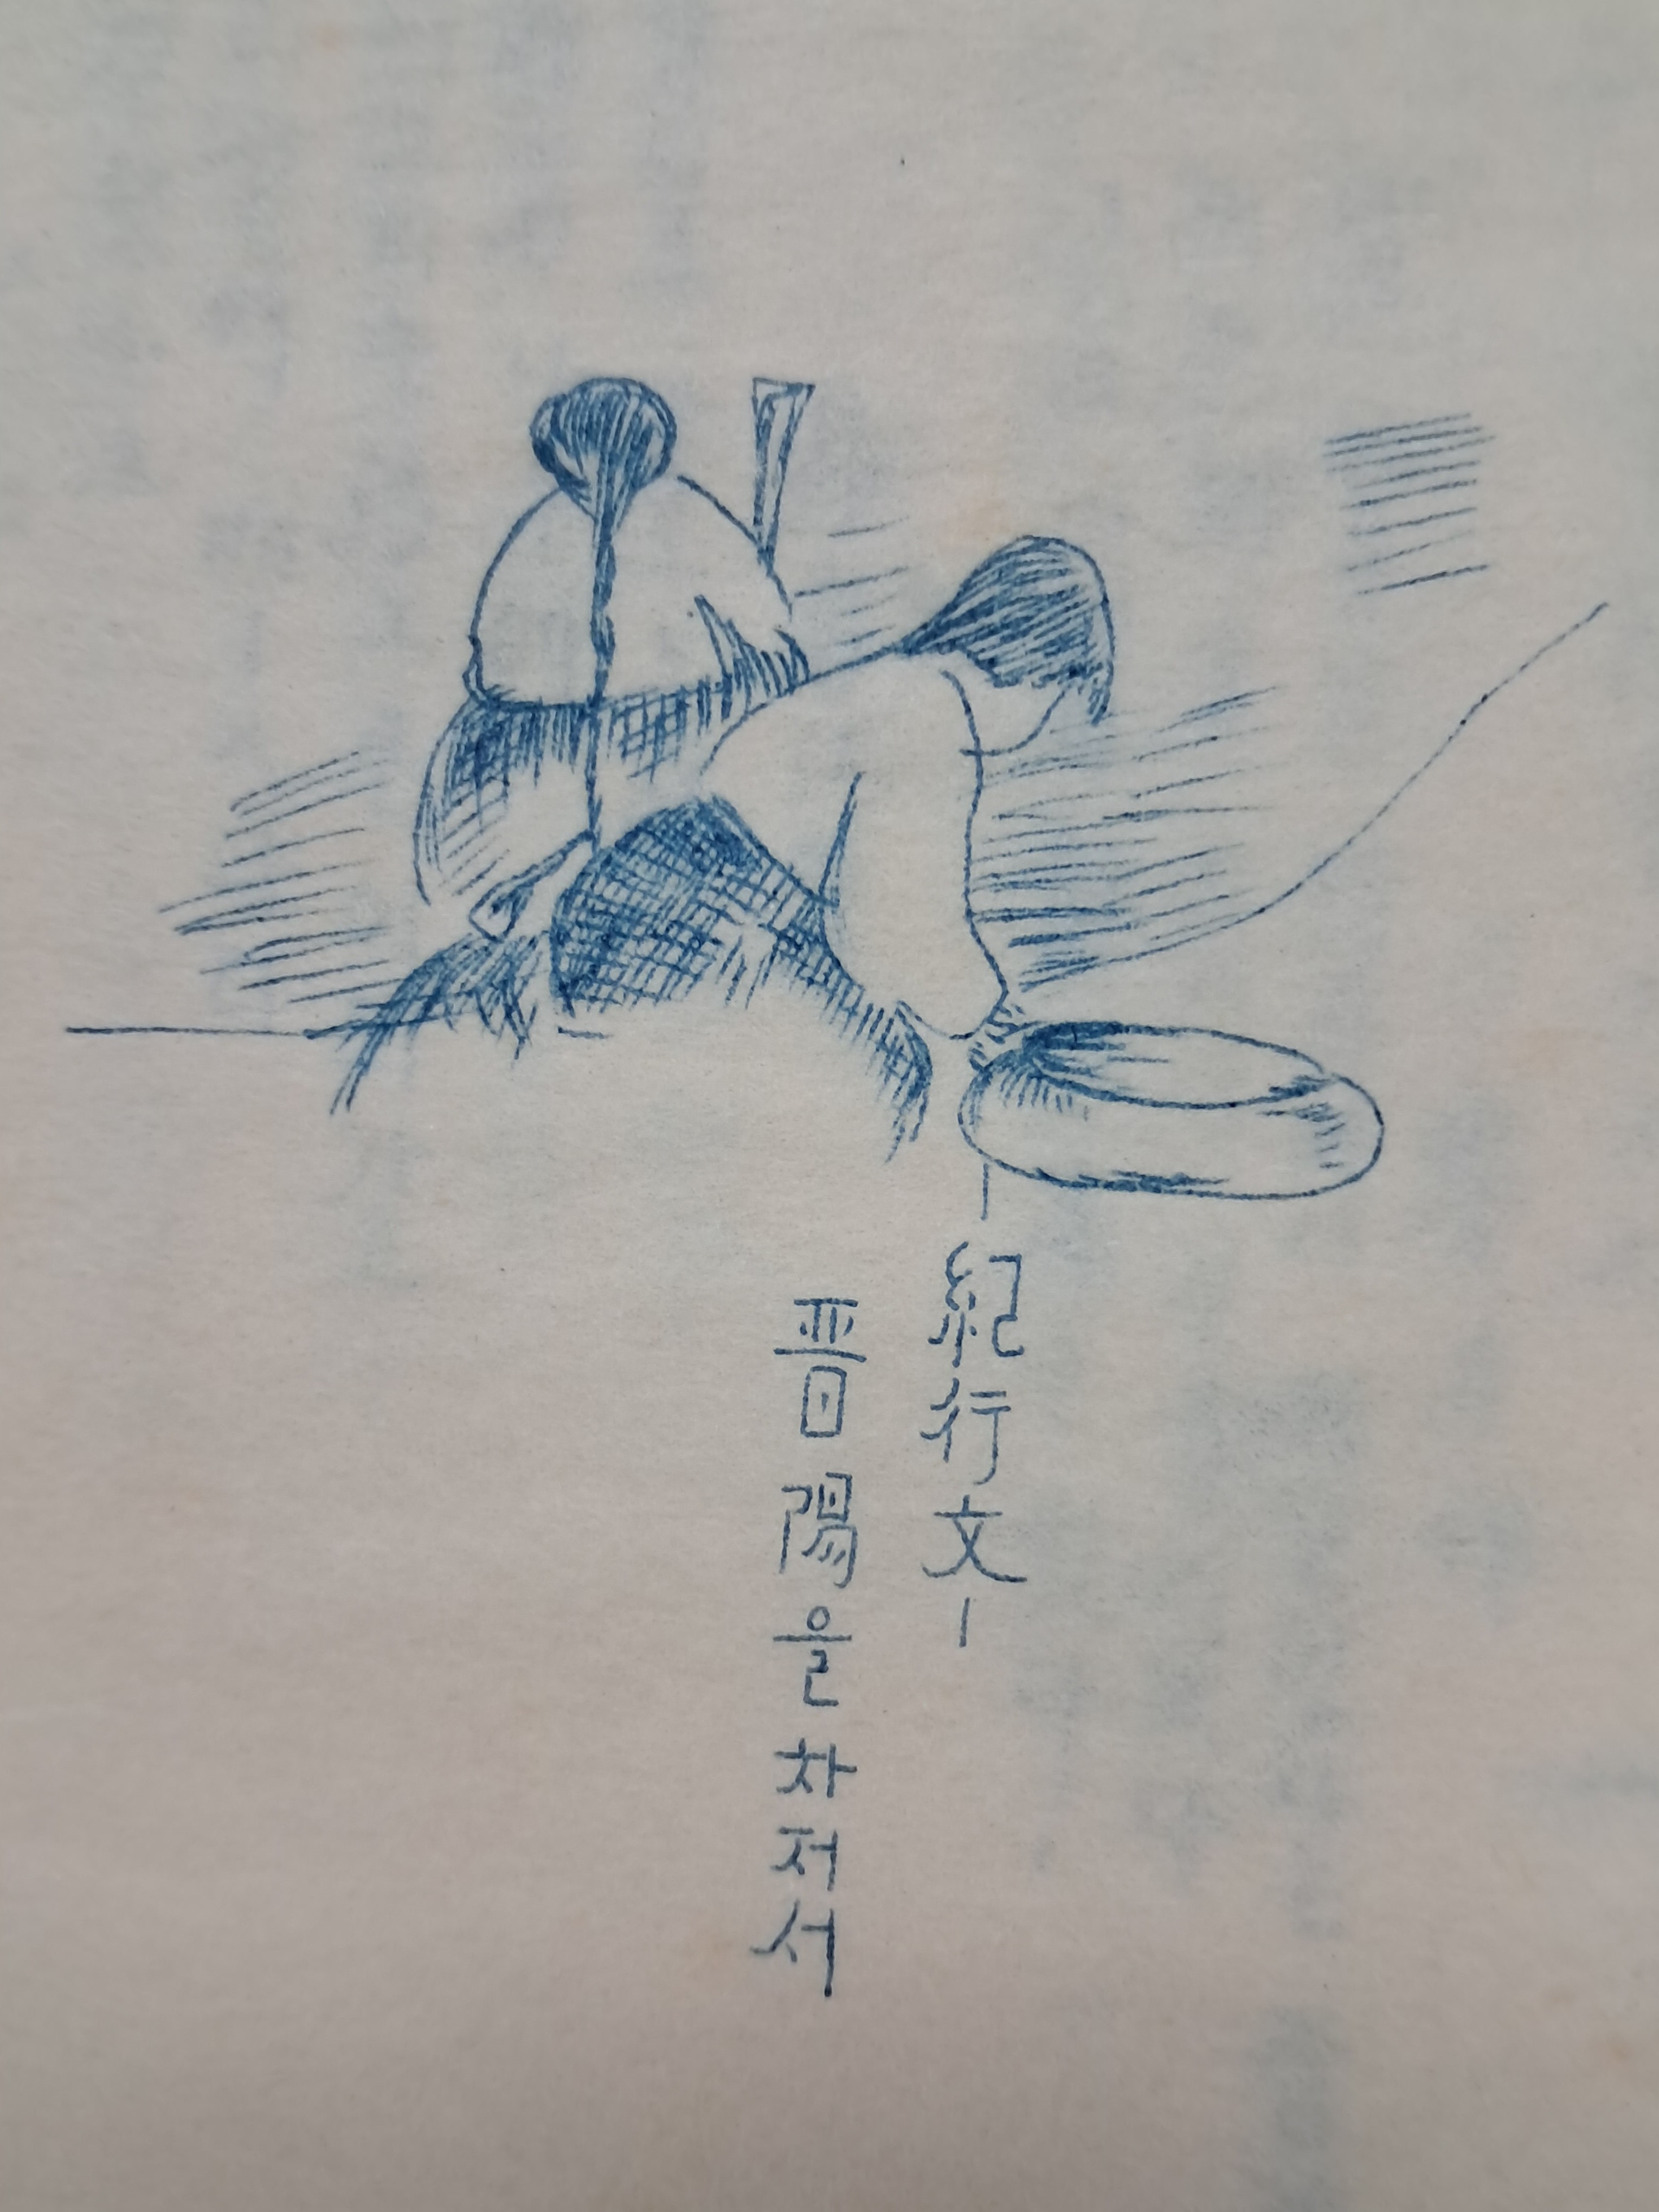 ―紀行文―
晋陽을차저서